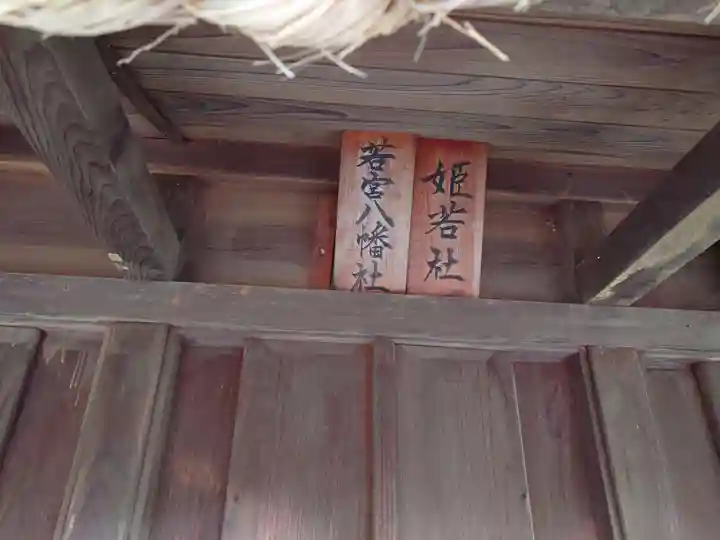 姫若社
若宮八幡社